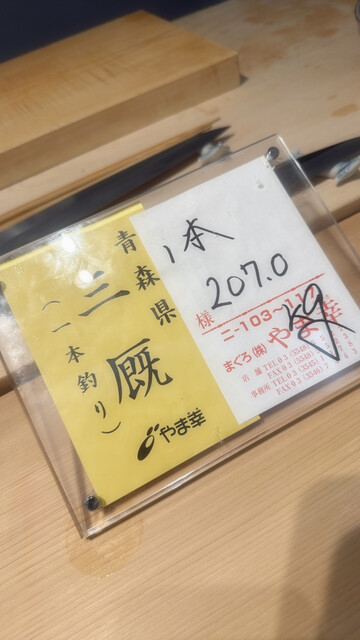 青森県
三厩
(一本釣り)
やま幸
1本
207.0
様
ニ-103~11
まぐろ(株)やま幸
店舗 TEL03(3548)
FAX03(3548)
事務所 TEL03(3545)
FAX03(3546)